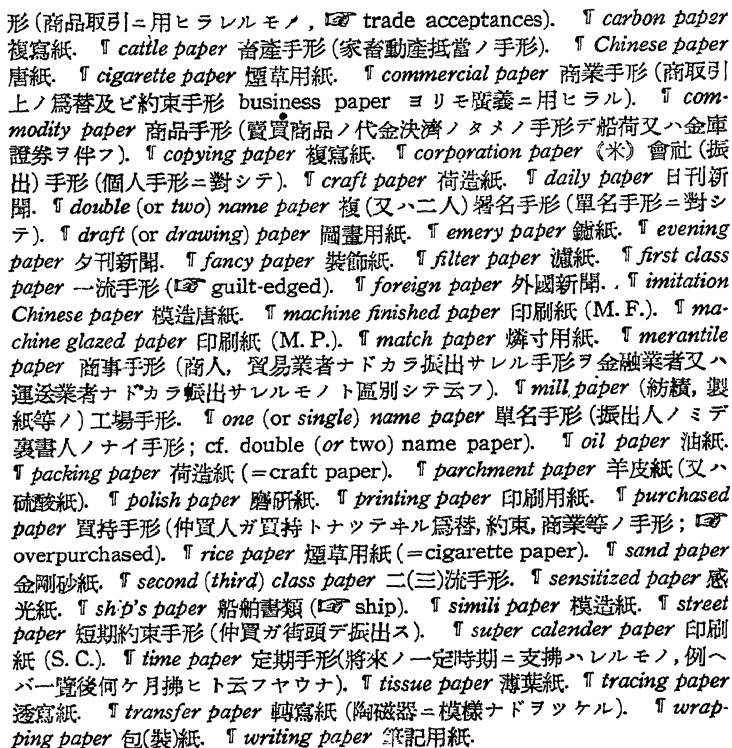 形 (商品取引ニ用ヒラレルモノ, ☞ trade acceptances). ¶ carbon paper
複寫紙. ¶ cattle paper 畜產手形 (家畜動產抵當ノ手形). ¶ Chinese paper
唐紙. ¶ cigarette paper 煙草用紙. ¶ commercial paper 商業手形 (商取引
上ノ爲替及ビ約束手形 business paper ヨリモ廣義ニ用ヒラル). ¶ com-
modity paper 商品手形 (賣買商品ノ代金決濟ノタメノ手形デ船荷又ハ倉庫
證券ヲ伴フ). ¶ copying paper 複寫紙. ¶ corporation paper 《米》會社 (振
出) 手形 (個人手形ニ對シテ). ¶ craft paper 荷造紙. ¶ daily paper 日刊新
聞. ¶ double (or two) name paper 複 (又ハ二人) 署名手形 (單名手形ニ對シ
テ). ¶ draft (or drawing) paper 圖畫用紙. ¶ emery paper 鑢紙. ¶ evening
paper 夕刊新聞. ¶ fancy paper 裝飾紙. ¶ filter paper 濾紙. ¶ first class
paper 一流手形 (☞ guilt-edged). ¶ foreign paper 外國新聞. ¶ imitation
Chinese paper 模造唐紙. ¶ machine finished paper 印刷紙 (M. F.). ¶ ma-
chine glazed paper 印刷紙 (M. P.). ¶ match paper 燐寸用紙. ¶ merantile
paper 商事手形 (商人, 貿易業者ナドカラ振出サレル手形ヲ金融業者又ハ
運送業者ナドカラ振出サレルモノト區別シテ云フ). ¶ mill paper (紡績, 製
紙等ノ) 工場手形. ¶ one (or single) name paper 單名手形 (振出人ノミデ
裏書人ノナイ手形; cf. double (or two) name paper). ¶ oil paper 油紙.
¶ packing paper 荷造紙 (=craft paper). ¶ parchment paper 羊皮紙 (又ハ
硫酸紙). ¶ polish paper 磨硏紙. ¶ printing paper 印刷用紙. ¶ purchased
paper 買持手形 (仲買人ガ買持トナツテヰル爲替, 約束, 商業等ノ手形; ☞
overpurchased). ¶ rice paper 煙草用紙 (=cigarette paper). ¶ sand paper
金剛砂紙. ¶ second (third) class paper 二(三)流手形. ¶ sensitized paper 感
光紙. ¶ ship's paper 船舶書類 (☞ ship). ¶ simili paper 模造紙. ¶ street
paper 短期約束手形 (仲買ガ街頭デ振出ス). ¶ super calender paper 印刷
紙 (S. C.). ¶ time paper 定期手形(將來ノ一定時期ニ支拂ハレルモノ, 例ヘ
バ一覽後何ケ月拂ヒト云フヤウナ). ¶ tissue paper 薄葉紙. ¶ tracing paper
透寫紙. ¶ transfer paper 轉寫紙 (陶磁器ニ模樣ナドヲツケル). ¶ wrap-
ping paper 包(裝)紙. ¶ writing paper 筆記用紙.